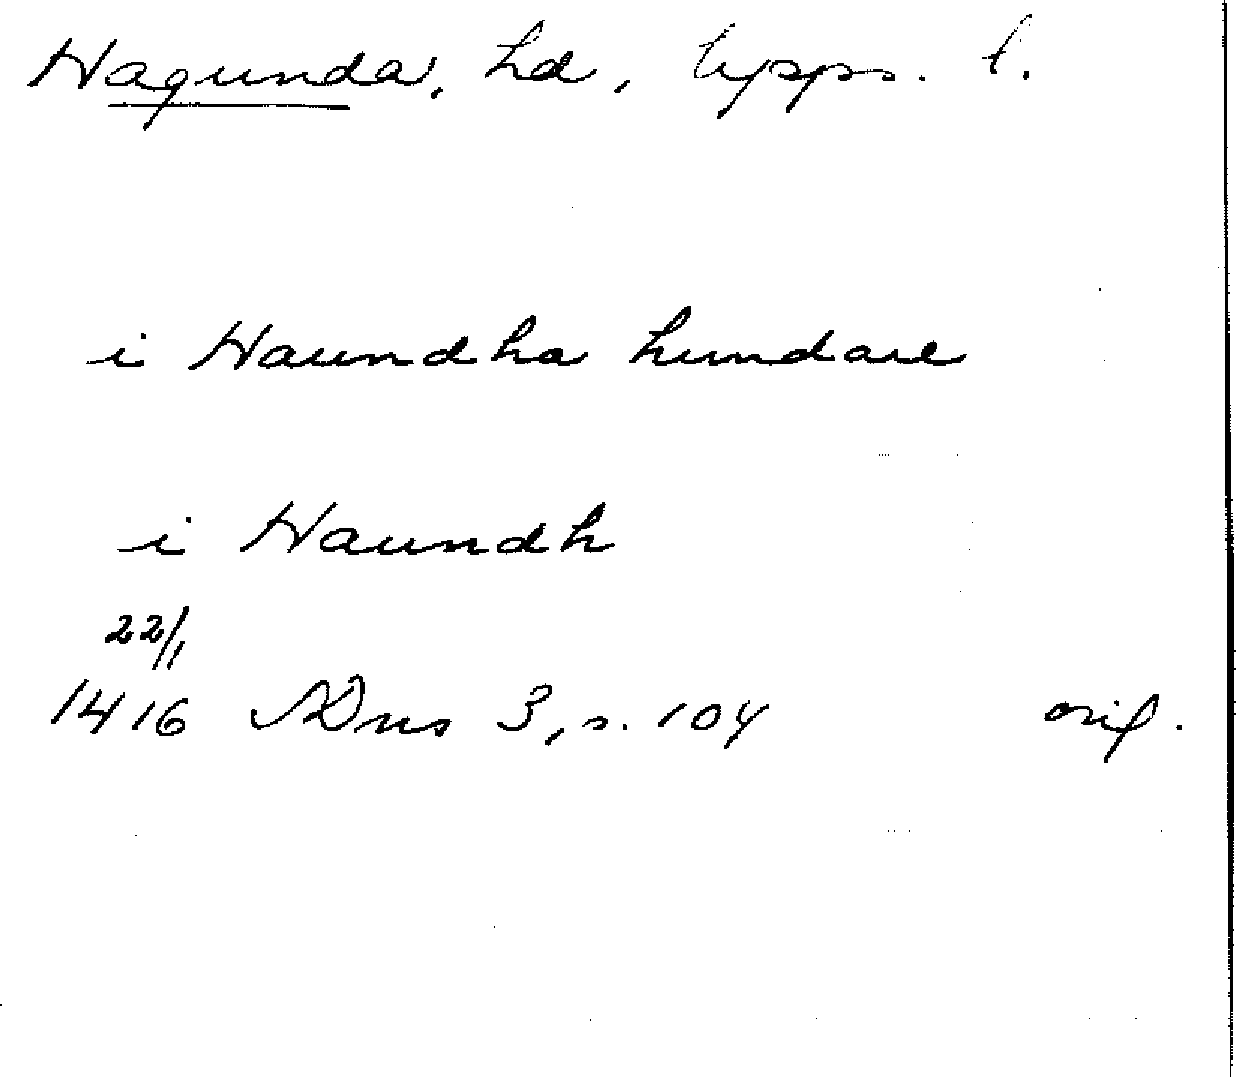 Hagunda, hd, Upps. l.
i Haundha hundare
i Haundh
22/1
1416 SDns 3, s. 104 orig.